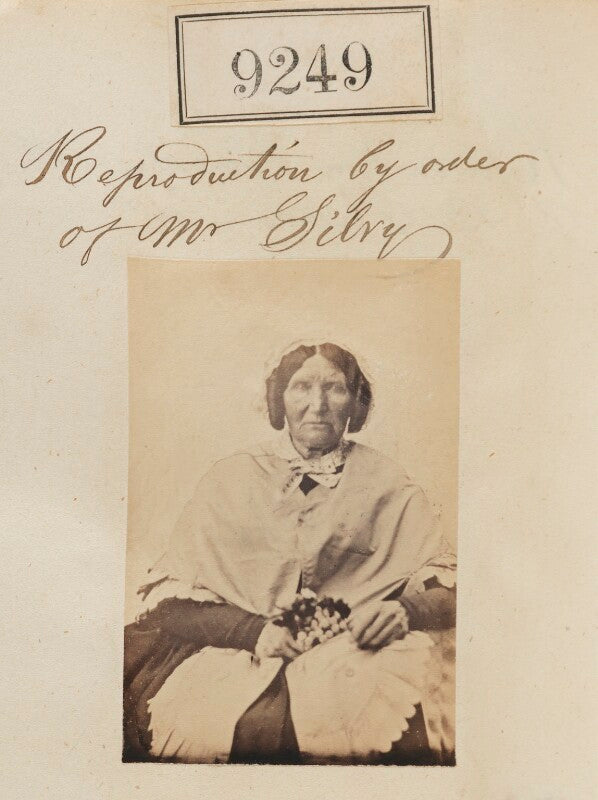 9249
Reproduction by order
of Mr Silvy